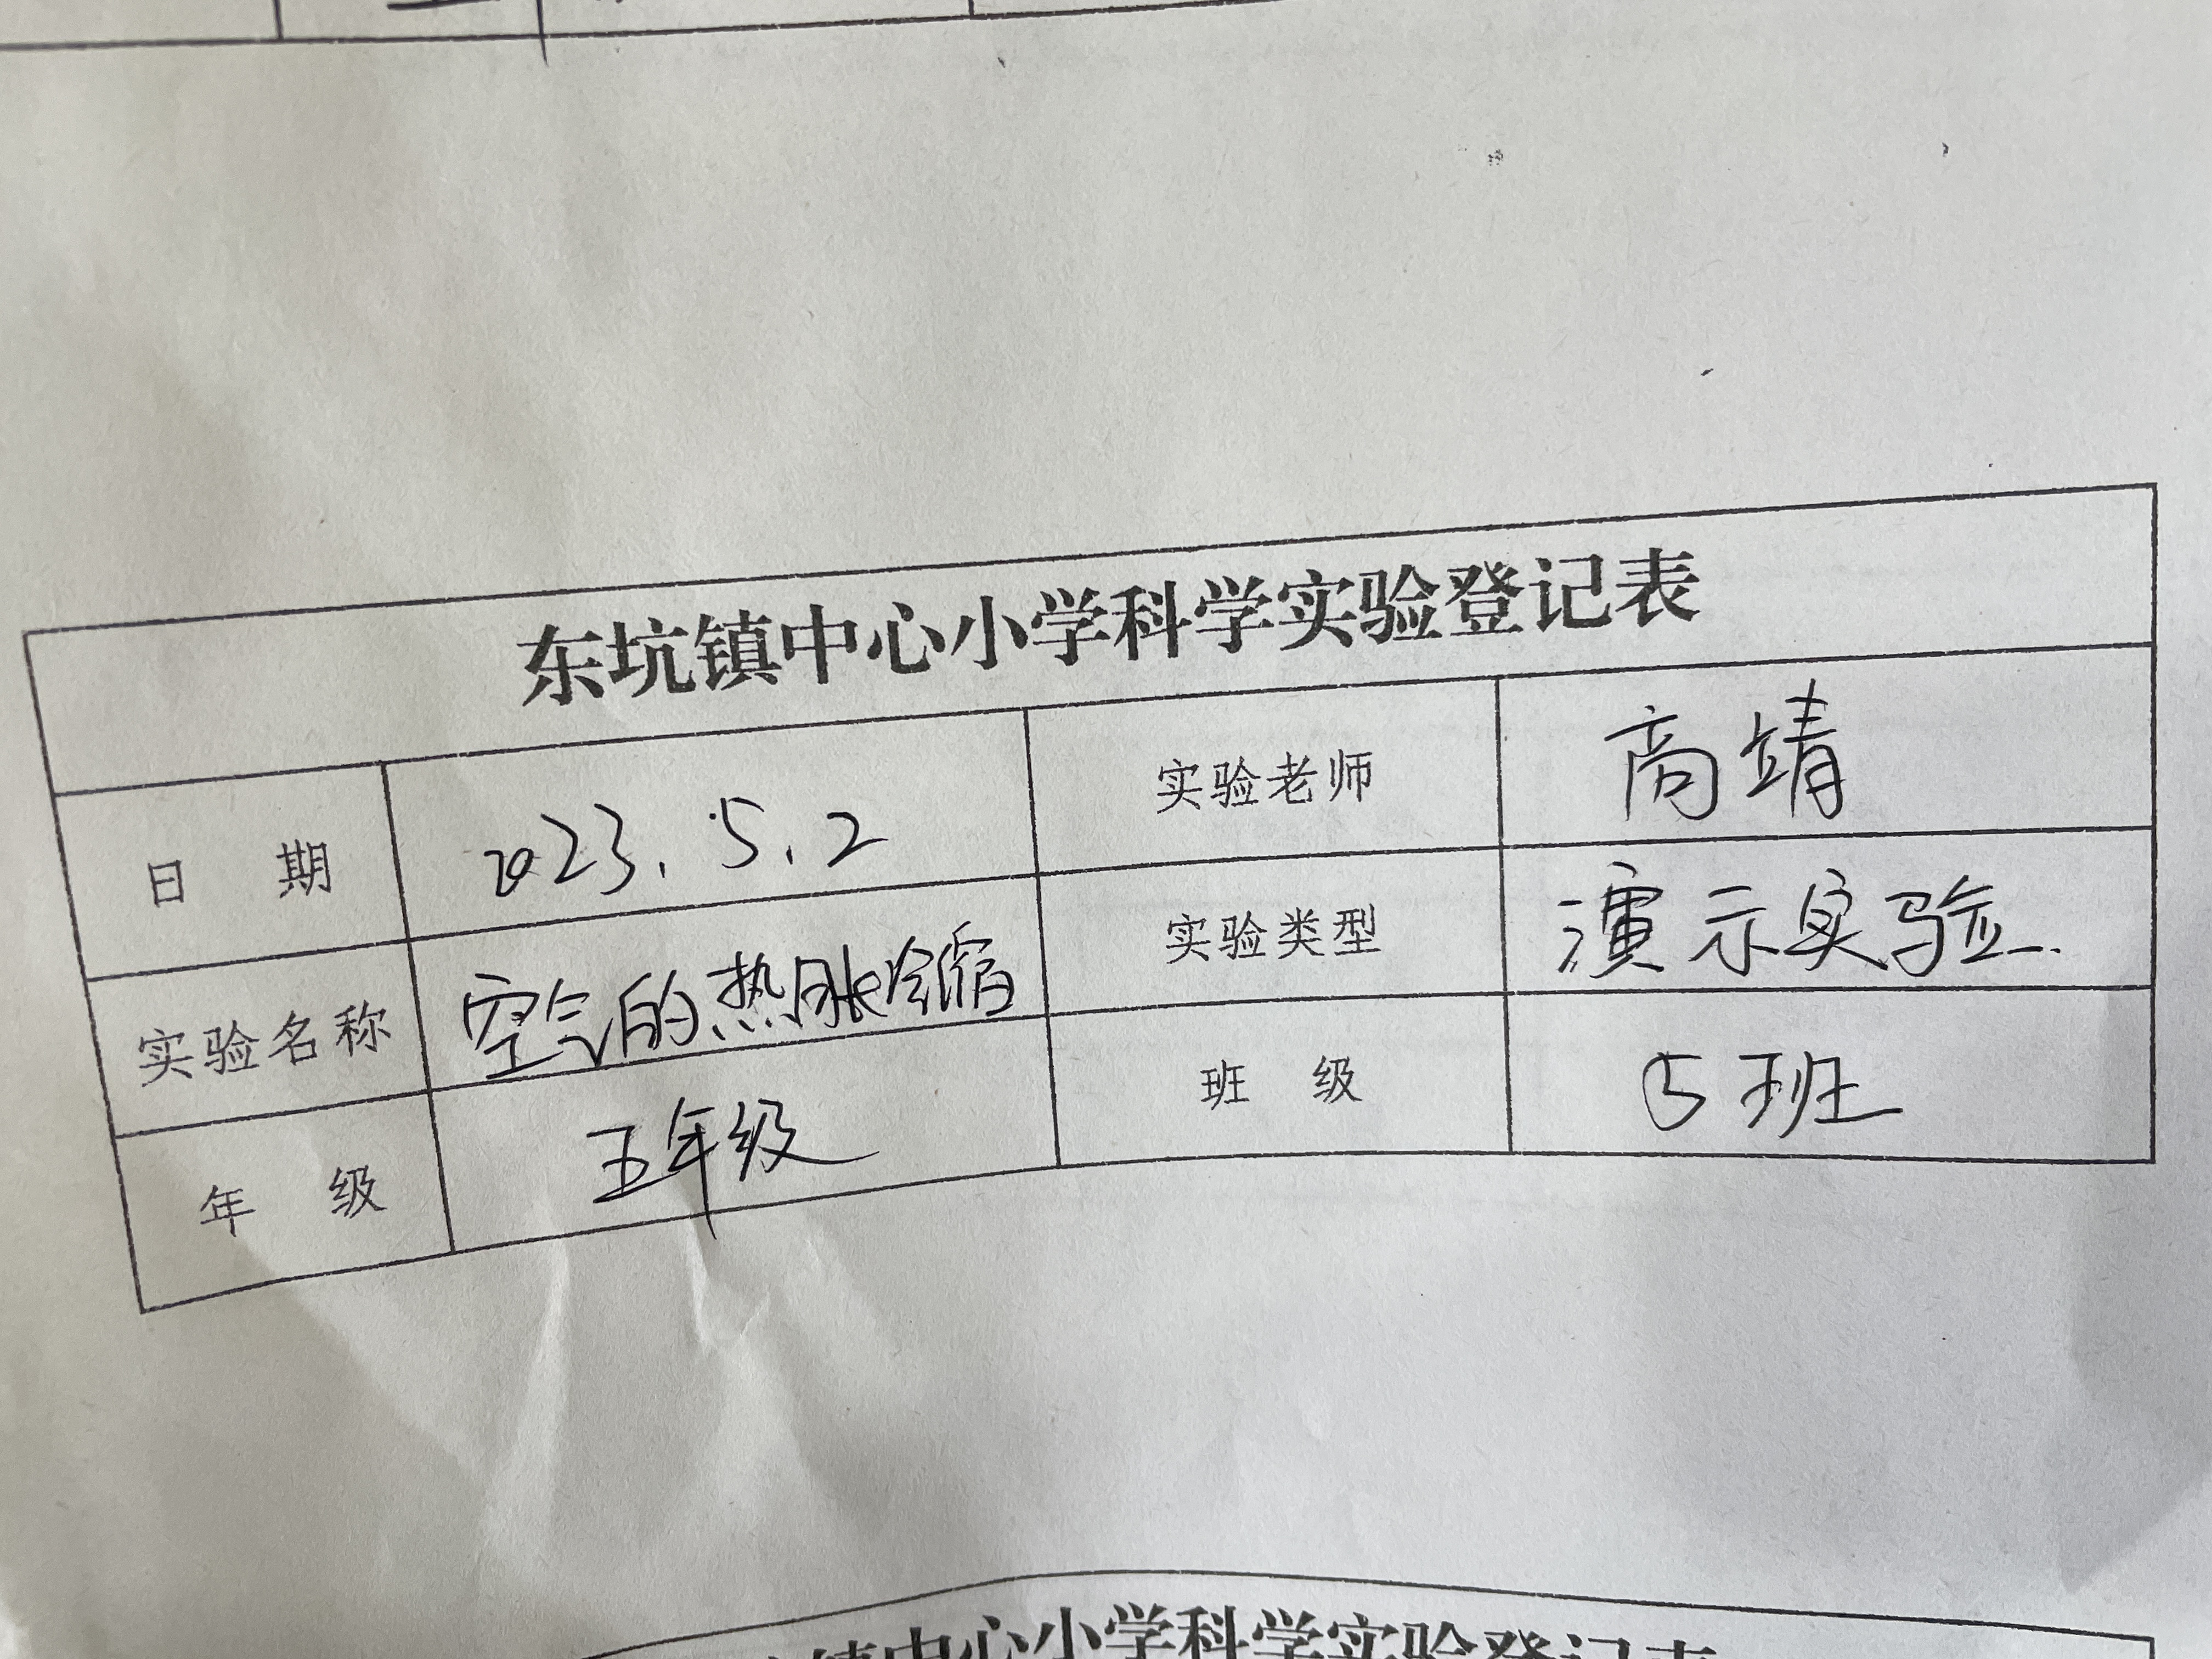 东坑镇中心小学科学实验登记表
日 期 2023.5.2 实验老师 商靖
实验名称 空气的热胀冷缩 实验类型 演示实验.
年 级 五年级 班 级 5班
镇中心小学科学实验登记表